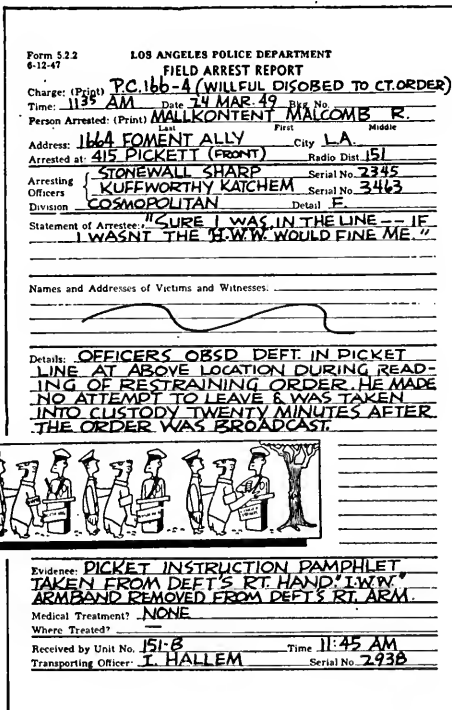 Form 5.2.2 LOS ANGELES POLICE DEPARTMENT
6-12-47 FIELD ARREST REPORT
Charge: (Print) P.C. 166-4 (WILLFUL DISOBED TO CT. ORDER)
Time: 1135 AM Date 24 MAR. 49 Bkg. No.
Person Arrested: (Print) MALLKONTENT MALCOMB R.
Last First Middle
Address: 1664 FOMENT ALLY City L.A.
Arrested at: 415 PICKETT (FRONT) Radio Dist. 151
Arresting Officers STONEWALL SHARP Serial No. 2345
KUFFWORTHY KATCHEM Serial No. 3463
Division COSMOPOLITAN Detail F.
Statement of Arrestee: "SURE I WAS IN THE LINE -- IF
I WASNT THE I.W.W. WOULD FINE ME."
Names and Addresses of Victims and Witnesses:
Details: OFFICERS OBSD DEFT. IN PICKET
LINE AT ABOVE LOCATION DURING READ-
ING OF RESTRAINING ORDER. HE MADE
NO ATTEMPT TO LEAVE & WAS TAKEN
INTO CUSTODY TWENTY MINUTES AFTER
THE ORDER WAS BROADCAST.
Evidence: PICKET INSTRUCTION PAMPHLET
TAKEN FROM DEFT'S RT. HAND. "I.W.W."
ARMBAND REMOVED FROM DEFT'S RT. ARM.
Medical Treatment? NONE
Where Treated? —
Received by Unit No. 151-B Time 11:45 AM
Transporting Officer I. HALLEM Serial No. 2938